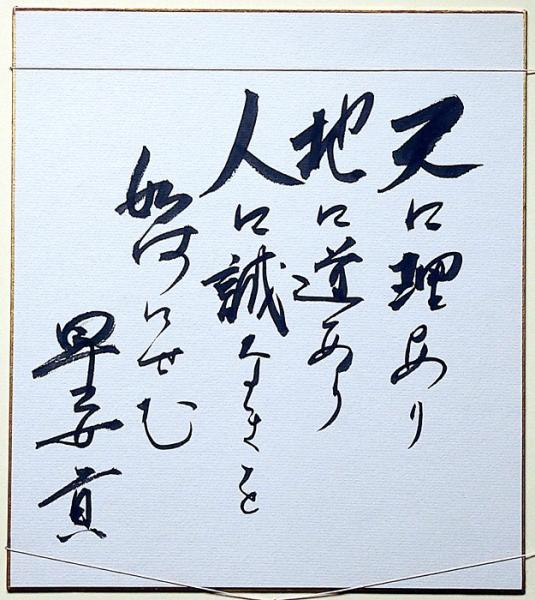 天に理あり
地に道あり
人に誠なきを
如何にせむ